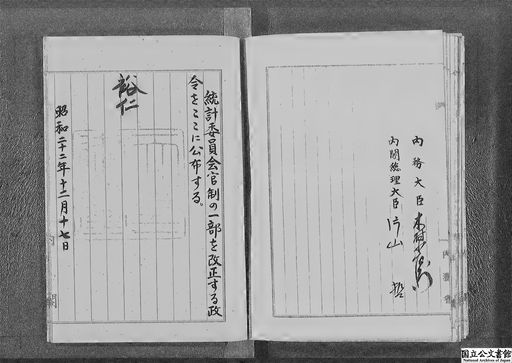 統計委員会官制の一部を改正する政
令をここに公布する。
裕仁
昭和二十二年十二月十七日
内務大臣 木村小左衛門
内閣総理大臣 片山 哲
国立公文書館
National Archives of Japan